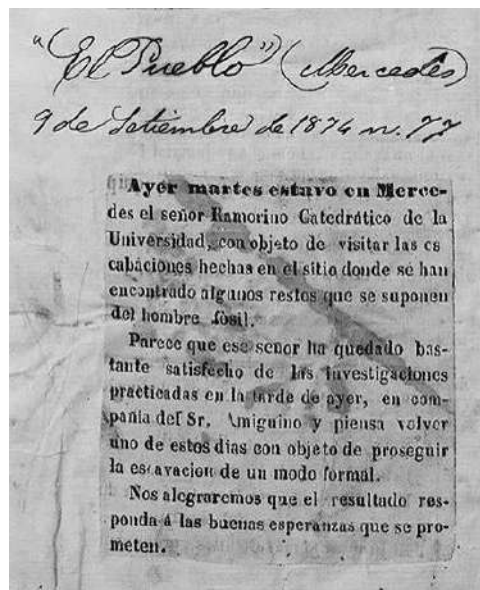 "El Pueblo" (Mercedes)
9 de Setiembre de 1874 n. 77
Ayer martes estuvo en Merce-
des el señor Ramorino Catedrático de la
Universidad, con objeto de visitar las es
cabaciones hechas en el sitio donde se han
encontrado algunos restos que se suponen
del hombre fósil.
Parece que ese señor ha quedado bas-
tante satisfecho de las investigaciones
practicadas en la tarde de ayer, en com-
pañia del Sr. Amiguino y piensa volver
uno de estos dias con objeto de proseguir
la escavacion de un modo formal.
Nos alegraremos que el resultado res-
ponda á las buenas esperanzas que se pro-
meten.